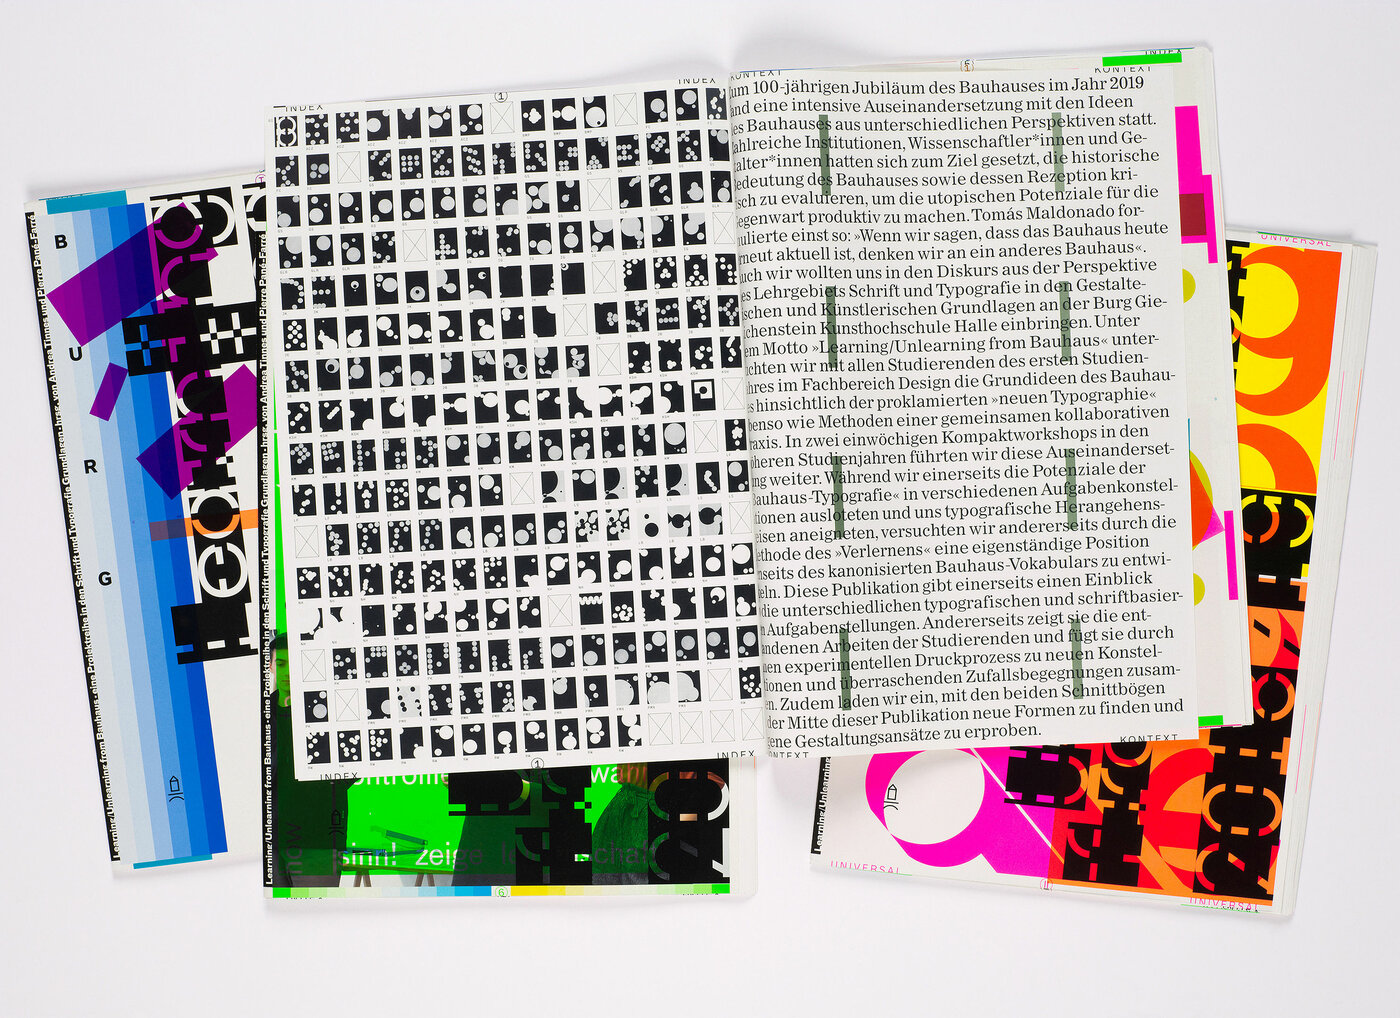 INDEX
INDEX
KONTEXT
KONTEXT
INDEX
um 100-jährigen Jubiläum des Bauhauses im Jahr 2019
and eine intensive Auseinandersetzung mit den Ideen
es Bauhauses aus unterschiedlichen Perspektiven statt.
ahlreiche Institutionen, Wissenschaftler*innen und Ge-
alter*innen hatten sich zum Ziel gesetzt, die historische
edeutung des Bauhauses sowie dessen Rezeption kri-
isch zu evaluieren, um die utopischen Potenziale für die
egenwart produktiv zu machen. Tomás Maldonado for-
ulierte einst so: »Wenn wir sagen, dass das Bauhaus heute
rneut aktuell ist, denken wir an ein anderes Bauhaus«.
uch wir wollten uns in den Diskurs aus der Perspektive
es Lehrgebiets Schrift und Typografie in den Gestalte-
ischen und Künstlerischen Grundlagen an der Burg Gie-
ichenstein Kunsthochschule Halle einbringen. Unter
em Motto »Learning/Unlearning from Bauhaus« unter-
ichten wir mit allen Studierenden des ersten Studien-
hres im Fachbereich Design die Grundideen des Bauhau-
s hinsichtlich der proklamierten »neuen Typographie«
benso wie Methoden einer gemeinsamen kollaborativen
raxis. In zwei einwöchigen Kompaktworkshops in den
öheren Studienjahren führten wir diese Auseinanderset-
ng weiter. Während wir einerseits die Potenziale der
Bauhaus-Typografie« in verschiedenen Aufgabenkonstel-
tionen ausloteten und uns typografische Herangehens-
eisen aneigneten, versuchten wir andererseits durch die
ethode des »Verlernens« eine eigenständige Position
nseits des kanonisierten Bauhaus-Vokabulars zu entwi-
eln. Diese Publikation gibt einerseits einen Einblick
die unterschiedlichen typografischen und schriftbasier-
n Aufgabenstellungen. Andererseits zeigt sie die ent-
andenen Arbeiten der Studierenden und fügt sie durch
nen experimentellen Druckprozess zu neuen Konstel-
tionen und überraschenden Zufallsbegegnungen zusam-
n. Zudem laden wir ein, mit den beiden Schnittbögen
der Mitte dieser Publikation neue Formen zu finden und
ene Gestaltungsansätze zu erproben.
INDEX
INDEX
KONTEXT
KONTEXT
1
1
B
U
R
G
Learning/Unlearning from Bauhaus – eine Projektreihe in den Schrift und Typografie Grundlagen, hrsg. von Andrea Tinnes und Pierre Pané-Farré
Learning/Unlearning from Bauhaus – eine Projektreihe in den Schrift und Typografie Grundlagen, hrsg. von Andrea Tinnes und Pierre Pané-Farré
sinn! zeige
6
UNIVERSAL
Learning/Unlearning
UNIVERSAL
UNIVERSAL